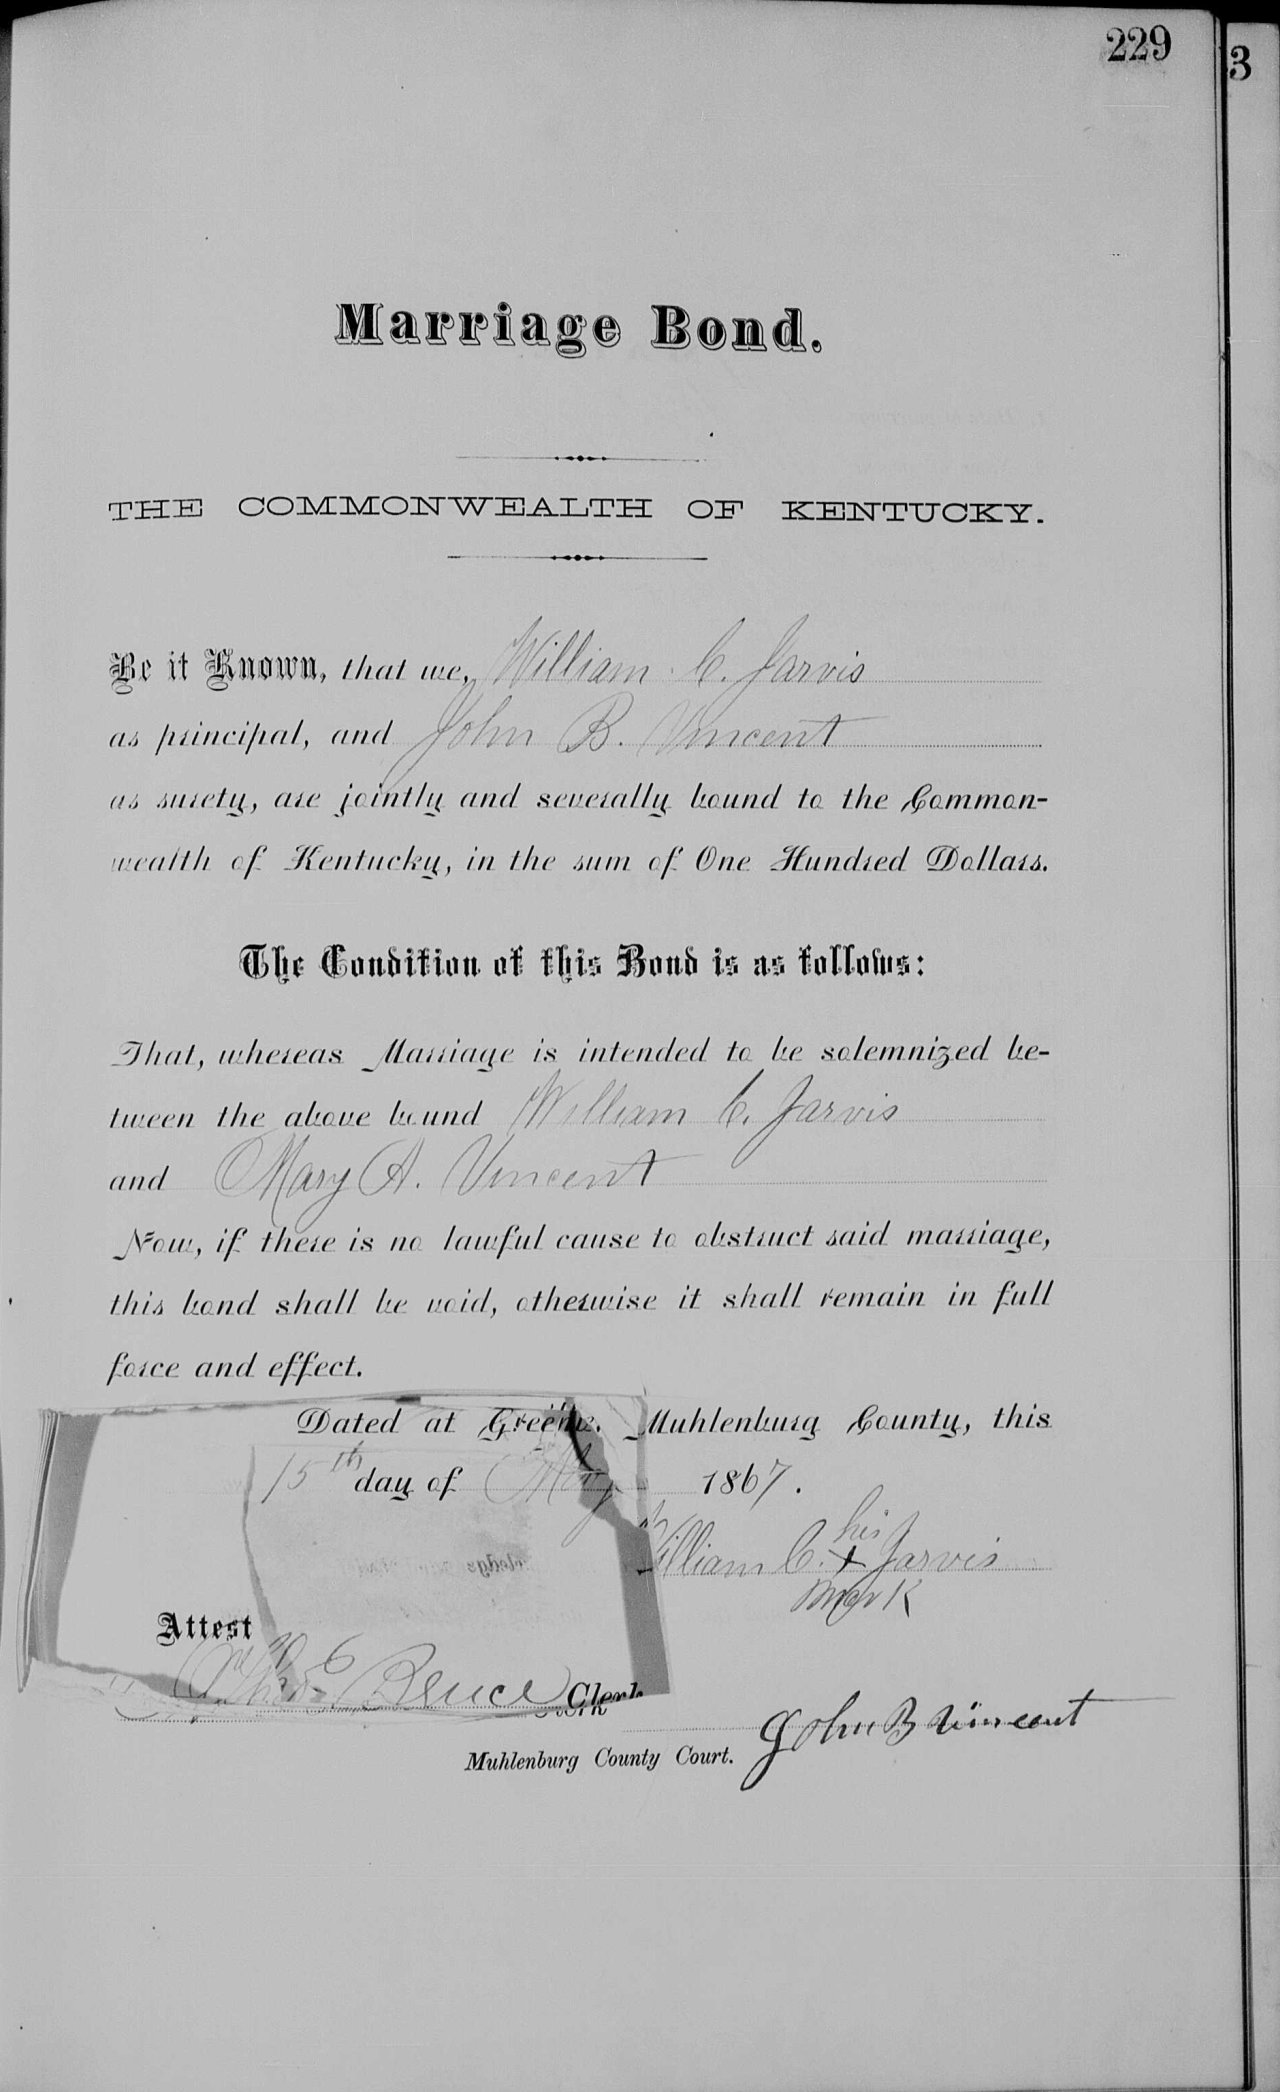 229
3
Marriage Bond.
THE COMMONWEALTH OF KENTUCKY.
Be it Known, that we, William C. Jarvis
as principal, and John B. Vincent
as surety, are jointly and severally bound to the Common-
wealth of Kentucky, in the sum of One Hundred Dollars.
The Condition of this Bond is as follows:
That, whereas Marriage is intended to be solemnized be-
tween the above bound William C. Jarvis
and Mary A. Vincent
Now, if there is no lawful cause to obstruct said marriage,
this bond shall be void, otherwise it shall remain in full
force and effect.
Dated at Muhlenburg County, this
15th day of May 1867.
William C. his x mark Jarvis
Attest
Bruce Clerk
John B Vincent
Muhlenburg County Court.